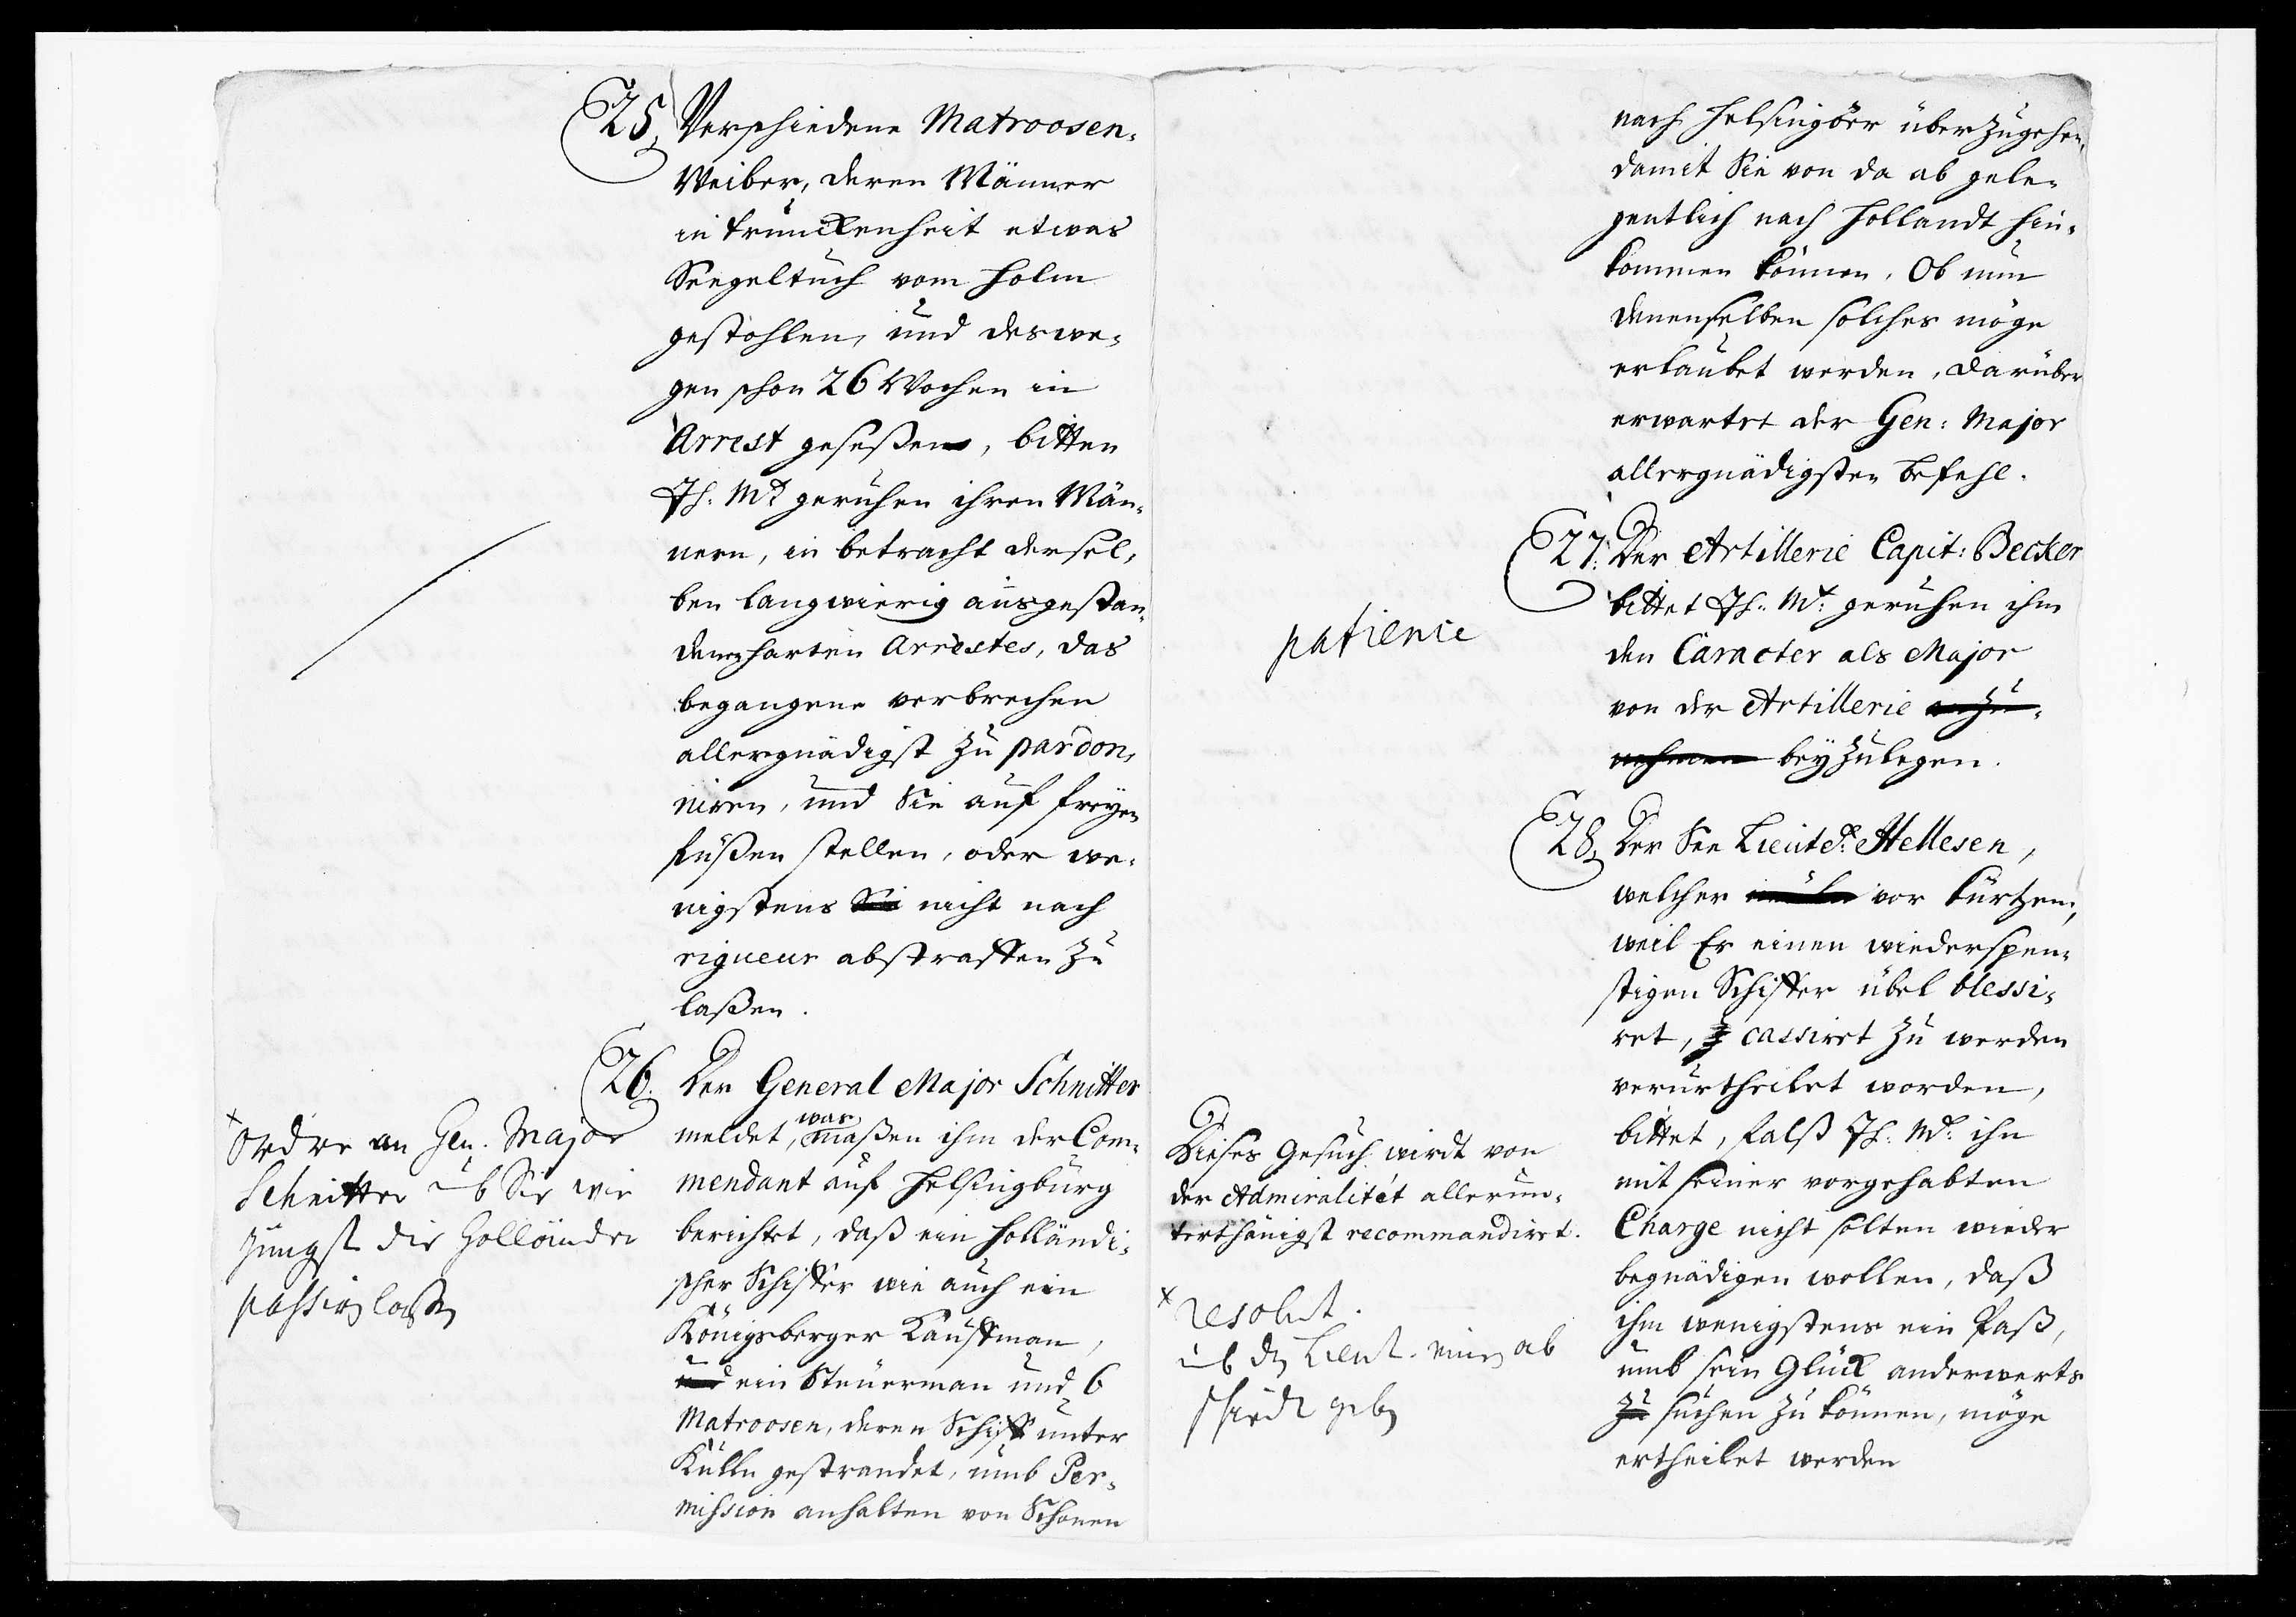 25, Verschiedene Matroosen-
Weiber, deren Männer
in trunckenheit etwas
Seegeltuch vom Holm
gestohlen, und deswe-
gen schon 26 Wochen in
Arrest geseßen, bitten
Ih: Mt geruhen ihren Män-
nern, in betracht dersel-
ben langwierig ausgestan-
denen harten Arrestes, das
begangene verbrechen
allergnädigst zu pardon-
niren, und Sie auf freyen
füßen stellen, oder we-
nigstens Sie nicht nach
rigueur abstraffen zu
laßen.
26. Der General Major Schnitter
meldet, was
maßen ihm der Com-
mendant auf Helsingburg
berichtet, daß ein Holländi-
scher Schiffer wie auch ein
Königsberger Kauffman,
und ein Steuerman und 6
Matroosen, deren Schiff unter
Kulln gestrandet, umb Per-
mission anhalten von Schonen
x
Ordre an Gen. Major
Schnitter umb Sie wie
jüngst die Holländer
passiren laßen
nach Helsingöer überzugehen,
damit Sie von da ab gele-
gentlich nach Hollandt hin-
kommen können. Ob nun
denenselben solches möge
erlaubet werden, darüber
erwartet der Gen: Major
allergnädigsten Befehl.
27. Der Artillerie Capit: Becker
bittet Ih: Mt: geruhen ihm
den Caracter als Major
von der Artillerie anzu-
nehmen beyzulegen.
patience
28, Der See Lieutet: Hellesen,
welcher vor kurtzem,
weil Er einen wiederspen-
stigen Schiffer übel blessi-
ret, cassiret zu werden
verurtheilet worden,
bittet, falß Ih: Mt: ihn
mit seiner vorgehabten
Charge nicht solten wieder
begnädigen wollen, daß
ihm wenigstens ein Paß,
umb sein Glück anderwerts
zu suchen zu können, möge
ertheilet werden
Dieses Gesuch wirdt von
der Admiralitét allerun-
terthänigst recommandiret.
x
resolut.
umb den Lieut. einen ab
schiedt geben